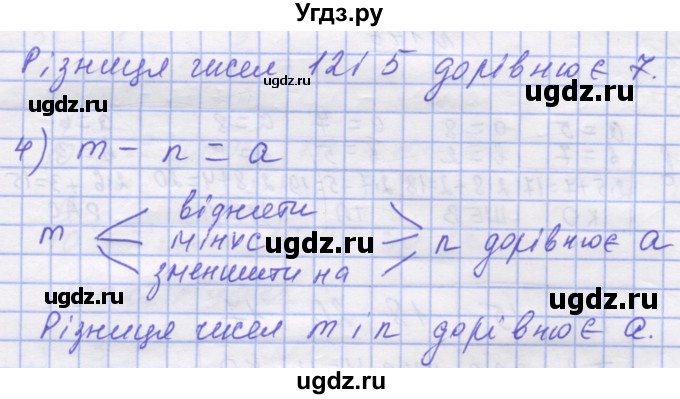 Угдз.ру
Різниця чисел 12 і 5 дорівнює 7.
ugdz.ru ugdz.ru ugdz.ru
4) m - n = a
m віднести n дорівнює a
мінус
ugdz.ru ugdz.ru
зменшити на
Різниця чисел m і n дорівнює a.
ugdz.ru ugdz.ru
ugdz.ru